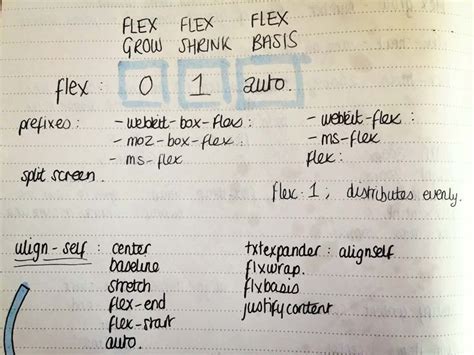 FLEX GROW FLEX SHRINK FLEX BASIS
flex: 0 1 auto.
prefixes: -webkit-box-flex: -webkit-flex:
-moz-box-flex: -ms-flex:
-ms-flex flex:
split screen.
flex: 1; distributes evenly.
align-self: center txtexpander: alignself
baseline flxwrap.
stretch flxbasis
flex-end justifycontent.
flex-start
auto.